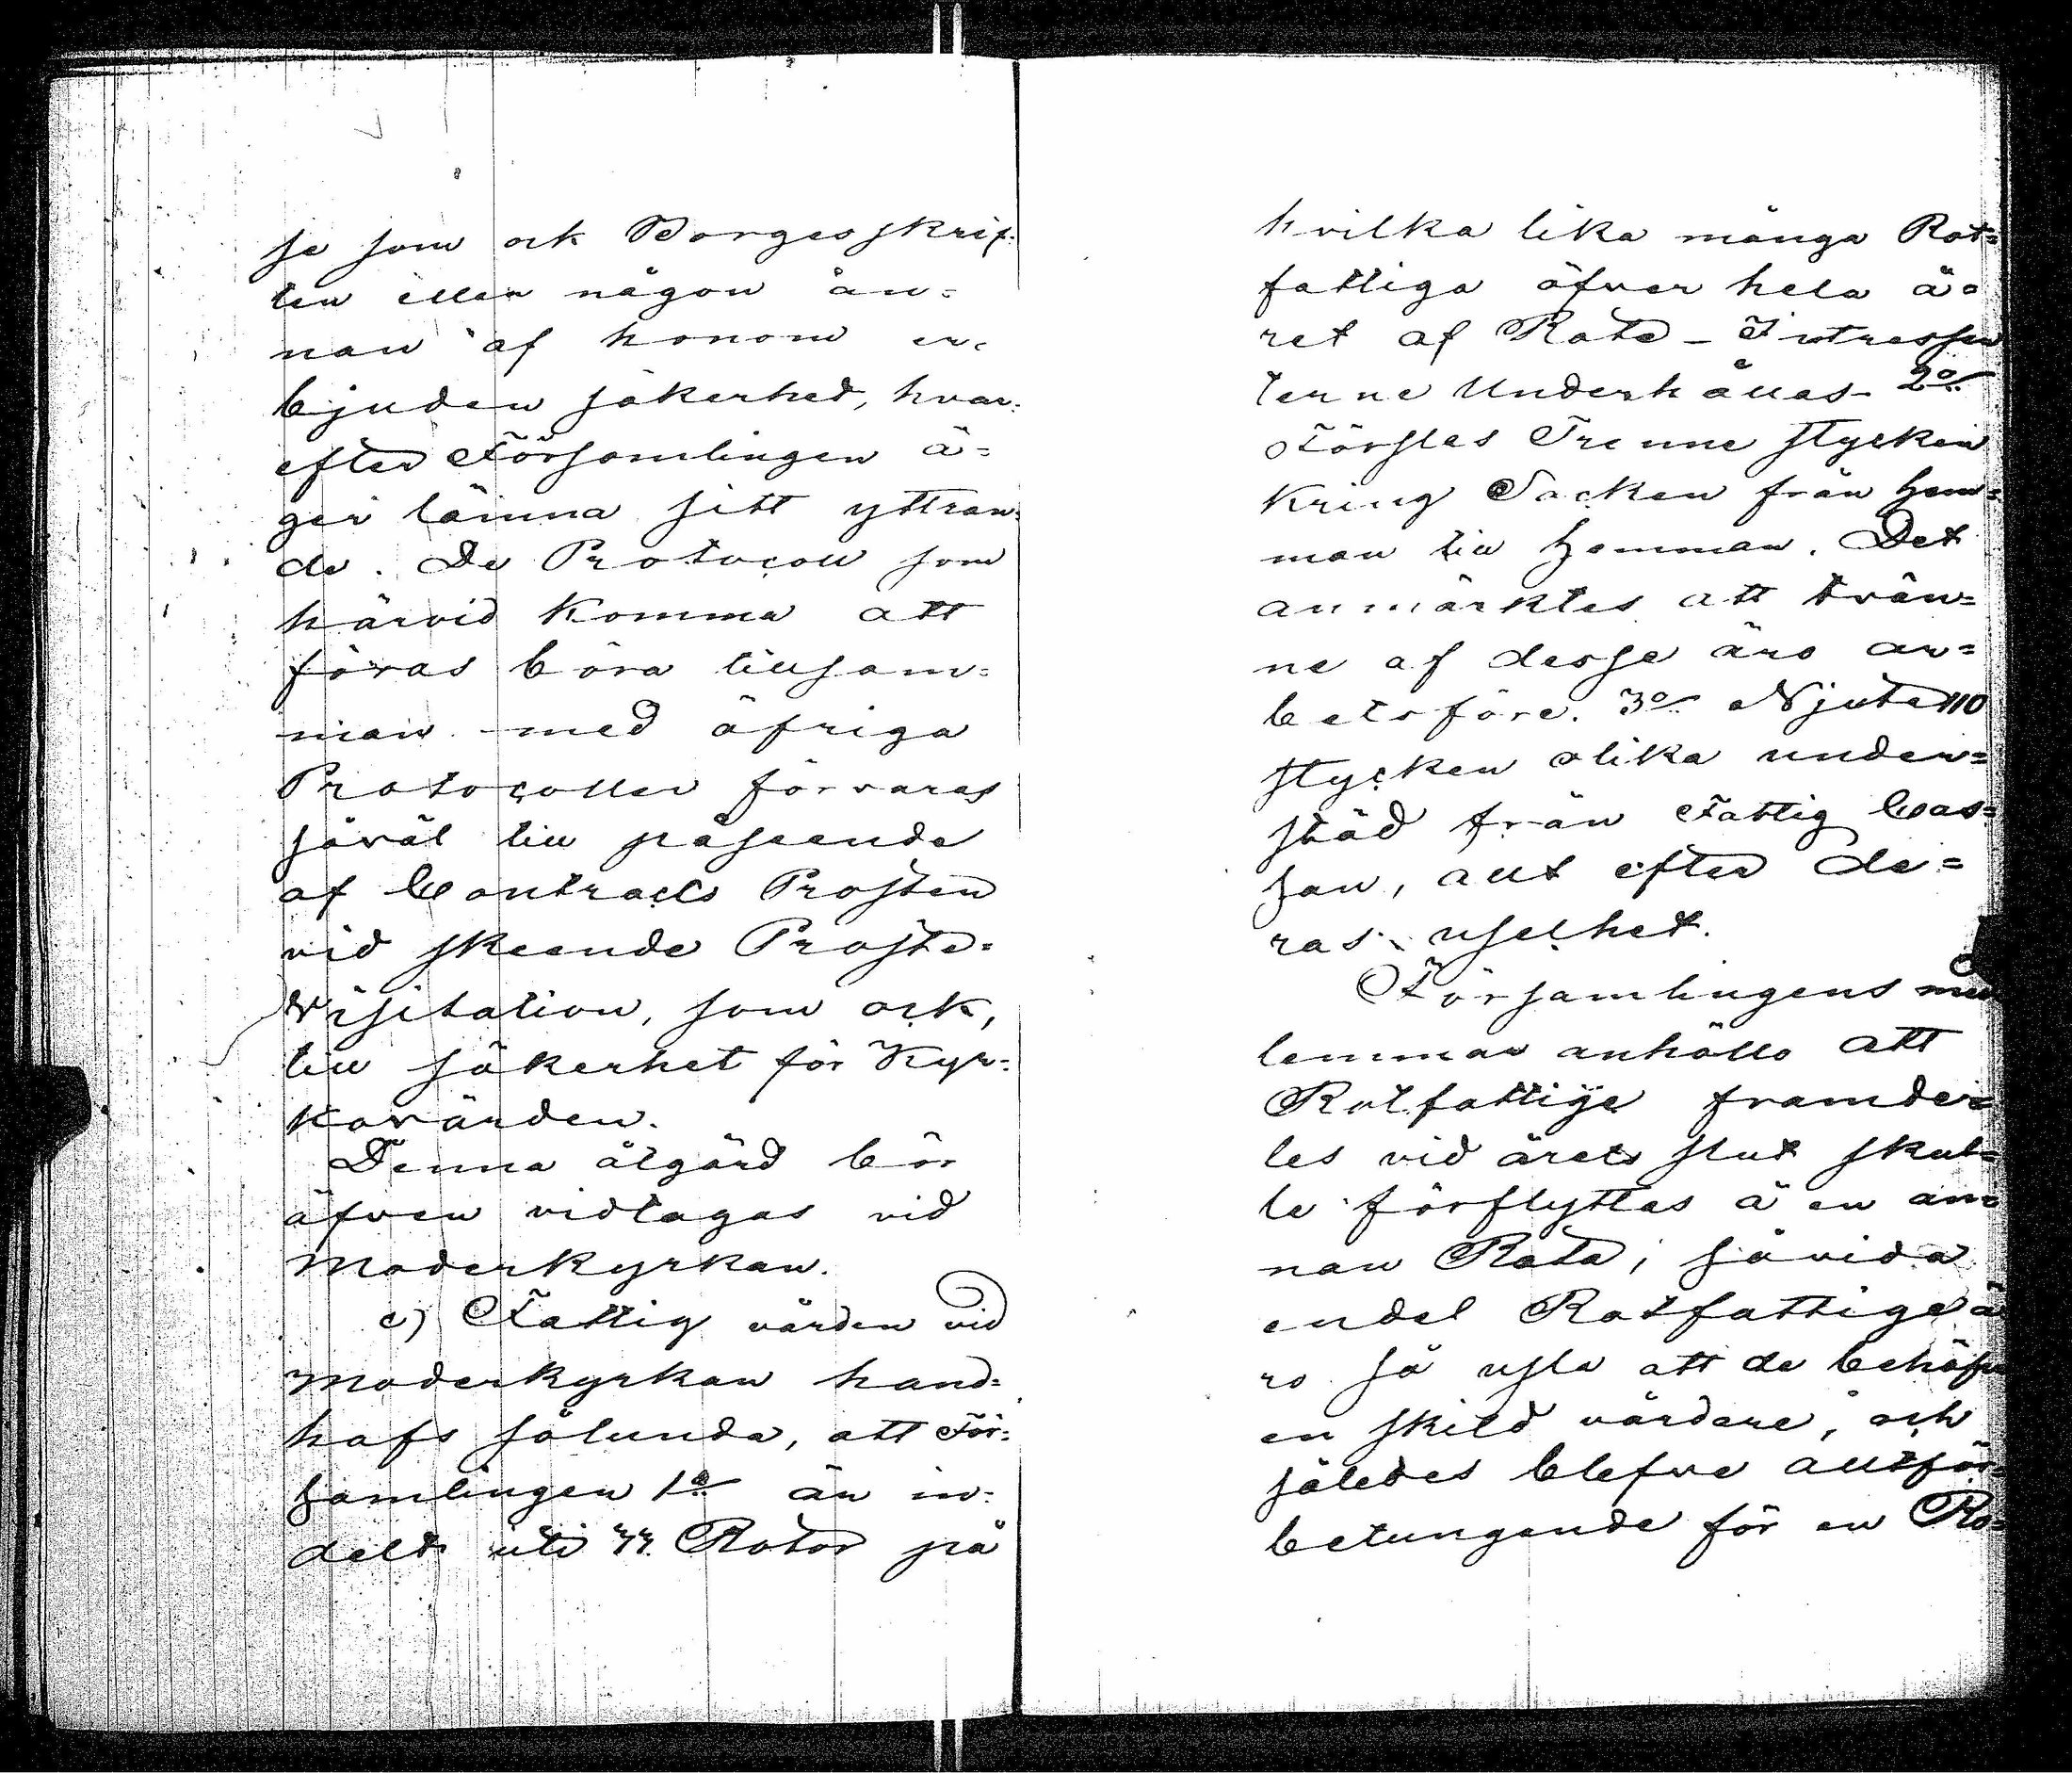 se som ock Borgesskrif-
ten eller någon an=
nan af honom er-
bjuden säkerhed, hvar-
efter Församlingen ä=
ger lämna sitt yttran-
de. De Protocoll som
härvid komma att
föras böra tillsam=
man med öfriga
Protocoller förvaras
såväl till påseende
af Contracts Prosten
vid skeende Proste=
Visitation, som ock,
till säkerhet för Kyr=
kovärden.
Denna åtgärd bör
äfven vidtagas vid
Moderkyrkan.
c) Fattig vården vid
Moderkyrkan hand=
hafs sålunda, att För=
samlingen 1o är in=
delt uti Rotar på
hvilka lika många Rot=
fattiga öfver hela å=
ret af Rote-Intressen
terne Underhållas. 2o
Förslas Trenne stycken
kring Socken från Hem=
man till Hemman. Det
anmärktes att trän=
ne af desse äro ar=
betsföre. 3o Njuta 110
stycken olika under=
stöd från Fattig Cas=
san, allt efter de=
ras uselhet.
Församlingens med
lemmar anhöllo att
Rotfattige framde=
les vid årets slut skul=
le förflyttas å en an=
nan Rota, såvida
endel Rotfattige ä
ro så usla att de behöfva
en skild vårdare, och
således blefve alltför=
betungande för en Ro=